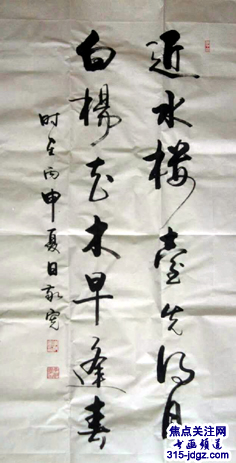 近水楼臺先得月
向陽花木早逢春
时在丙申夏日
焦点关注网
书画频道
315-jdgz.com